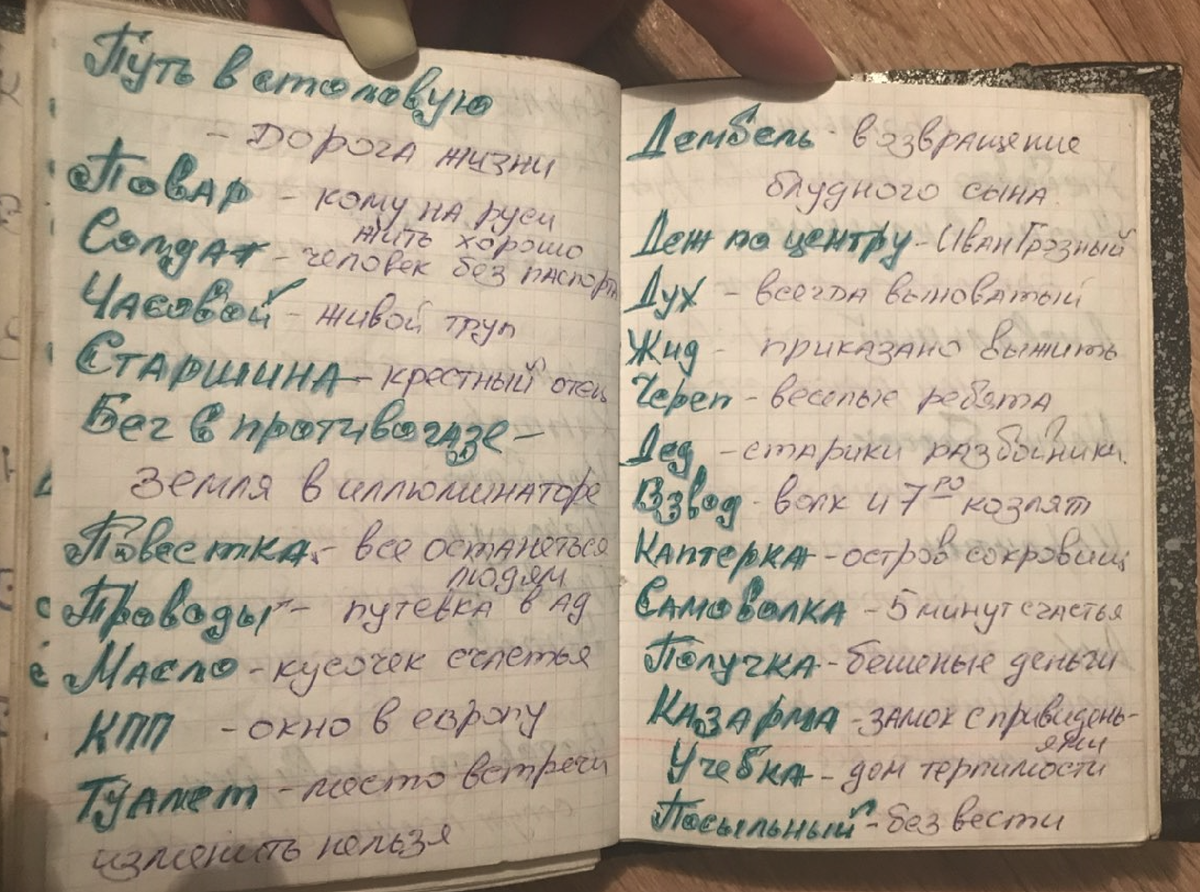 Путь в столовую
- дорога жизни
Повар - кому на руси
жить хорошо
Солдат - человек без паспорта
Часовой - живой труп
Старшина - крестный отец
Бег в противогазе -
земля в иллюминаторе
Повестка - все останеться
людям
Проводы - путевка в ад
Масло - кусочек счастья
КПП - окно в европу
Туалет - место встречи
изменить нельзя
Дембель - возвращение
блудного сына
Деж по центру - Иван Грозный
Дух - всегда выноватый
Жид - приказано выжить
Череп - веселые ребята
Дед - старики разбойники.
Взвод - волк и 7ро козлят
Каптерка - остров сокровищ
Самоволка - 5 минут счастья
Получка - бешеные деньги
Казарма - замок с привидень-
ями
Учебка - дом терпимости
Посыльный - без вести